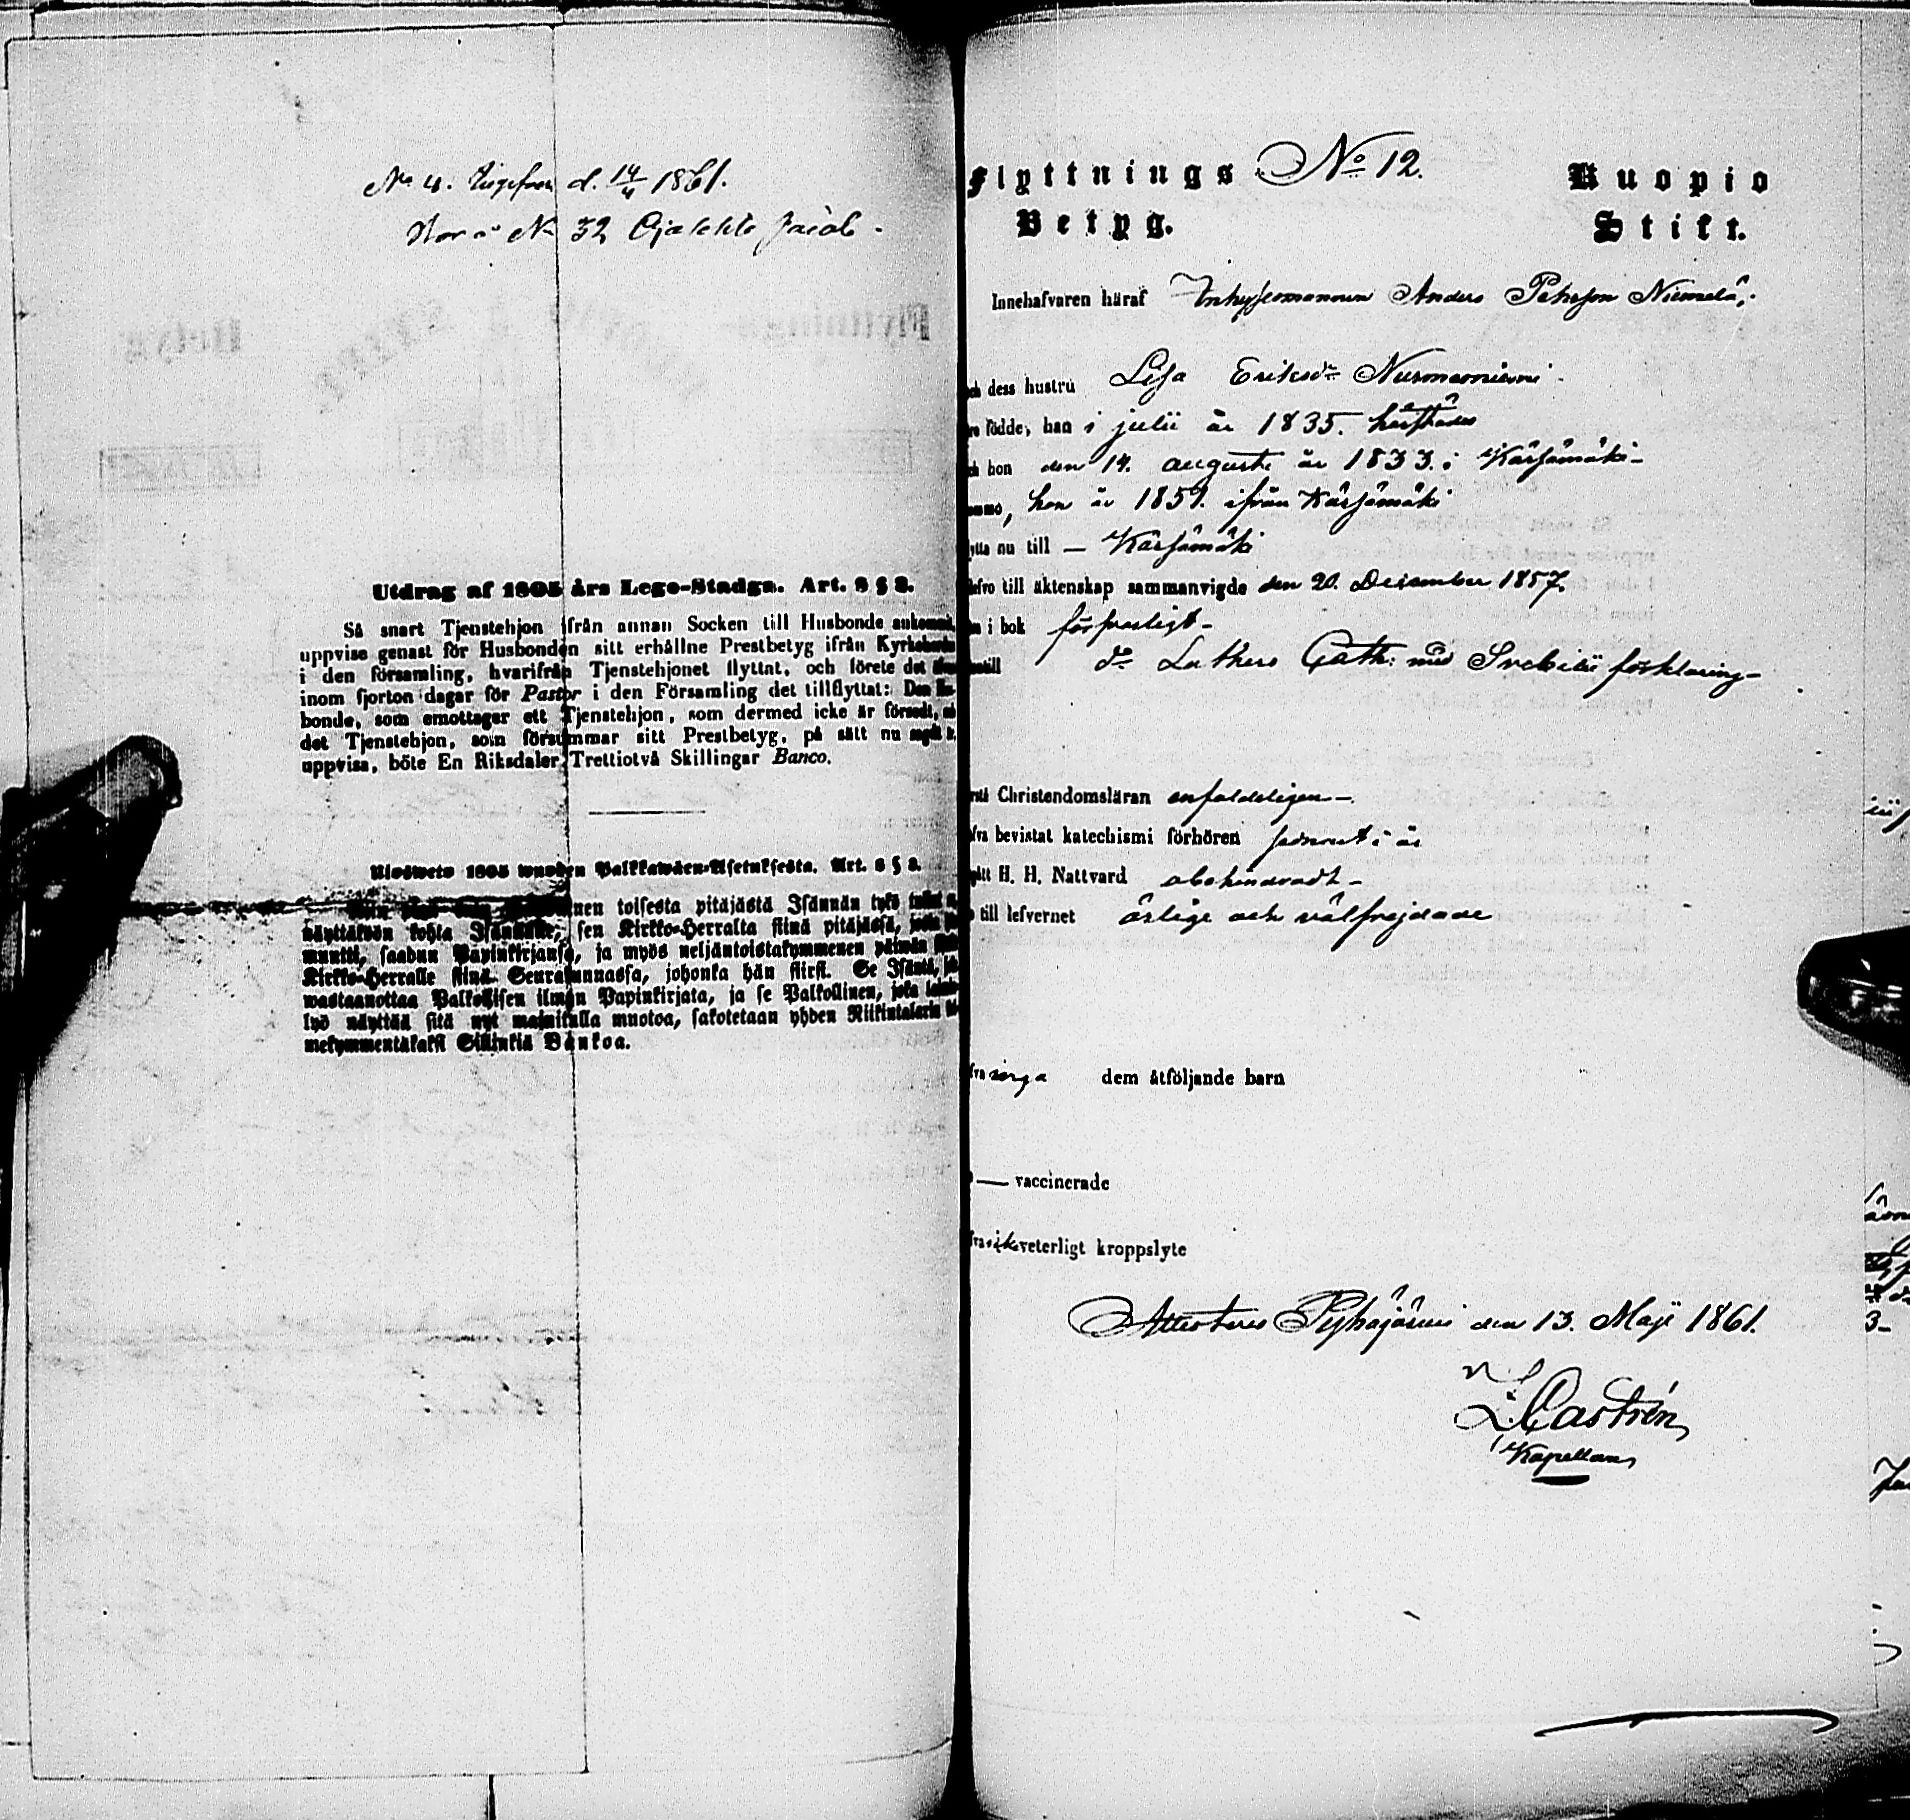 No 4. d. 14/4 1861.
No 32 Ojalehto Jacob.
Utdrag af 1805 års Lego-Stadga. Art. 8 § 2.
Så snart Tjenstehjon ifrån annan Socken till Husbonde
uppvise genast för Husbonden sitt erhållne Prestbetyg ifrån
i den församling, hvarifrån Tjenstehjonet flyttat, och förete det
inom fjorton dagar för Pastor i den Församling det tillflyttat: Den
bonde, som emottager ett Tjenstehjon, som dermed icke är försedt,
det Tjenstehjon, som försummar sitt Prestbetyg, på sätt nu sagdt
uppvisa, böte En Riksdaler Trettiotvå Skillingar Banco.
Ulosweto 1805 wuoden Palkkawäen-Asetuksesta. Art. 8 § 2.
toisesta pitäjästä Isännän tykö
näyttäköön kohta Isännälle, sen Kirkko-Herralta siinä pitäjässä,
muutti, saadun Papinkirjansa, ja myös neljäntoistakymmenen päiwän
Kirkko-Herralle siinä Seurakunnassa, johonka hän siirsi. Se Isäntä,
wastaanottaa Palkollisen ilman Papinkirjata, ja se Palkollinen, joka
lyö näyttää sitä nyt mainitulla muotoa, sakotetaan yhden Riikintalarin
mekymmentäkaksi Sillinkiä Bankoa.
Flyttnings No 12. Kuopio
Betyg. Stift.
Innehafvaren häraf Inhysesmannen Anders Pehrson Niemelä,
dess hustru Lisa Eriksdr Nurmeniemi
födde, han i julii år 1835. härstädes
hon den 14. augusti år 1833. i Kärsämäki
hon år 1857. ifrån Kärsämäki
nu till – Kärsämäki
till äktenskap sammanvigde den 20. December 1857.
i bok försvarligt –
do Luthers Cath: med Svebilii förklaring –
Christendomsläran enfaldeligen –
bevistat katechismi förhören sednast i år
H. H. Nattvard obehindradt –
till lefvernet ärlige och välfrejdade
inga dem åtföljande barn
— vaccinerade
icke veterligt kroppslyte
Attesteras Pyhäjärvi den 13. Maji 1861.
L. Castrén
Kapellan